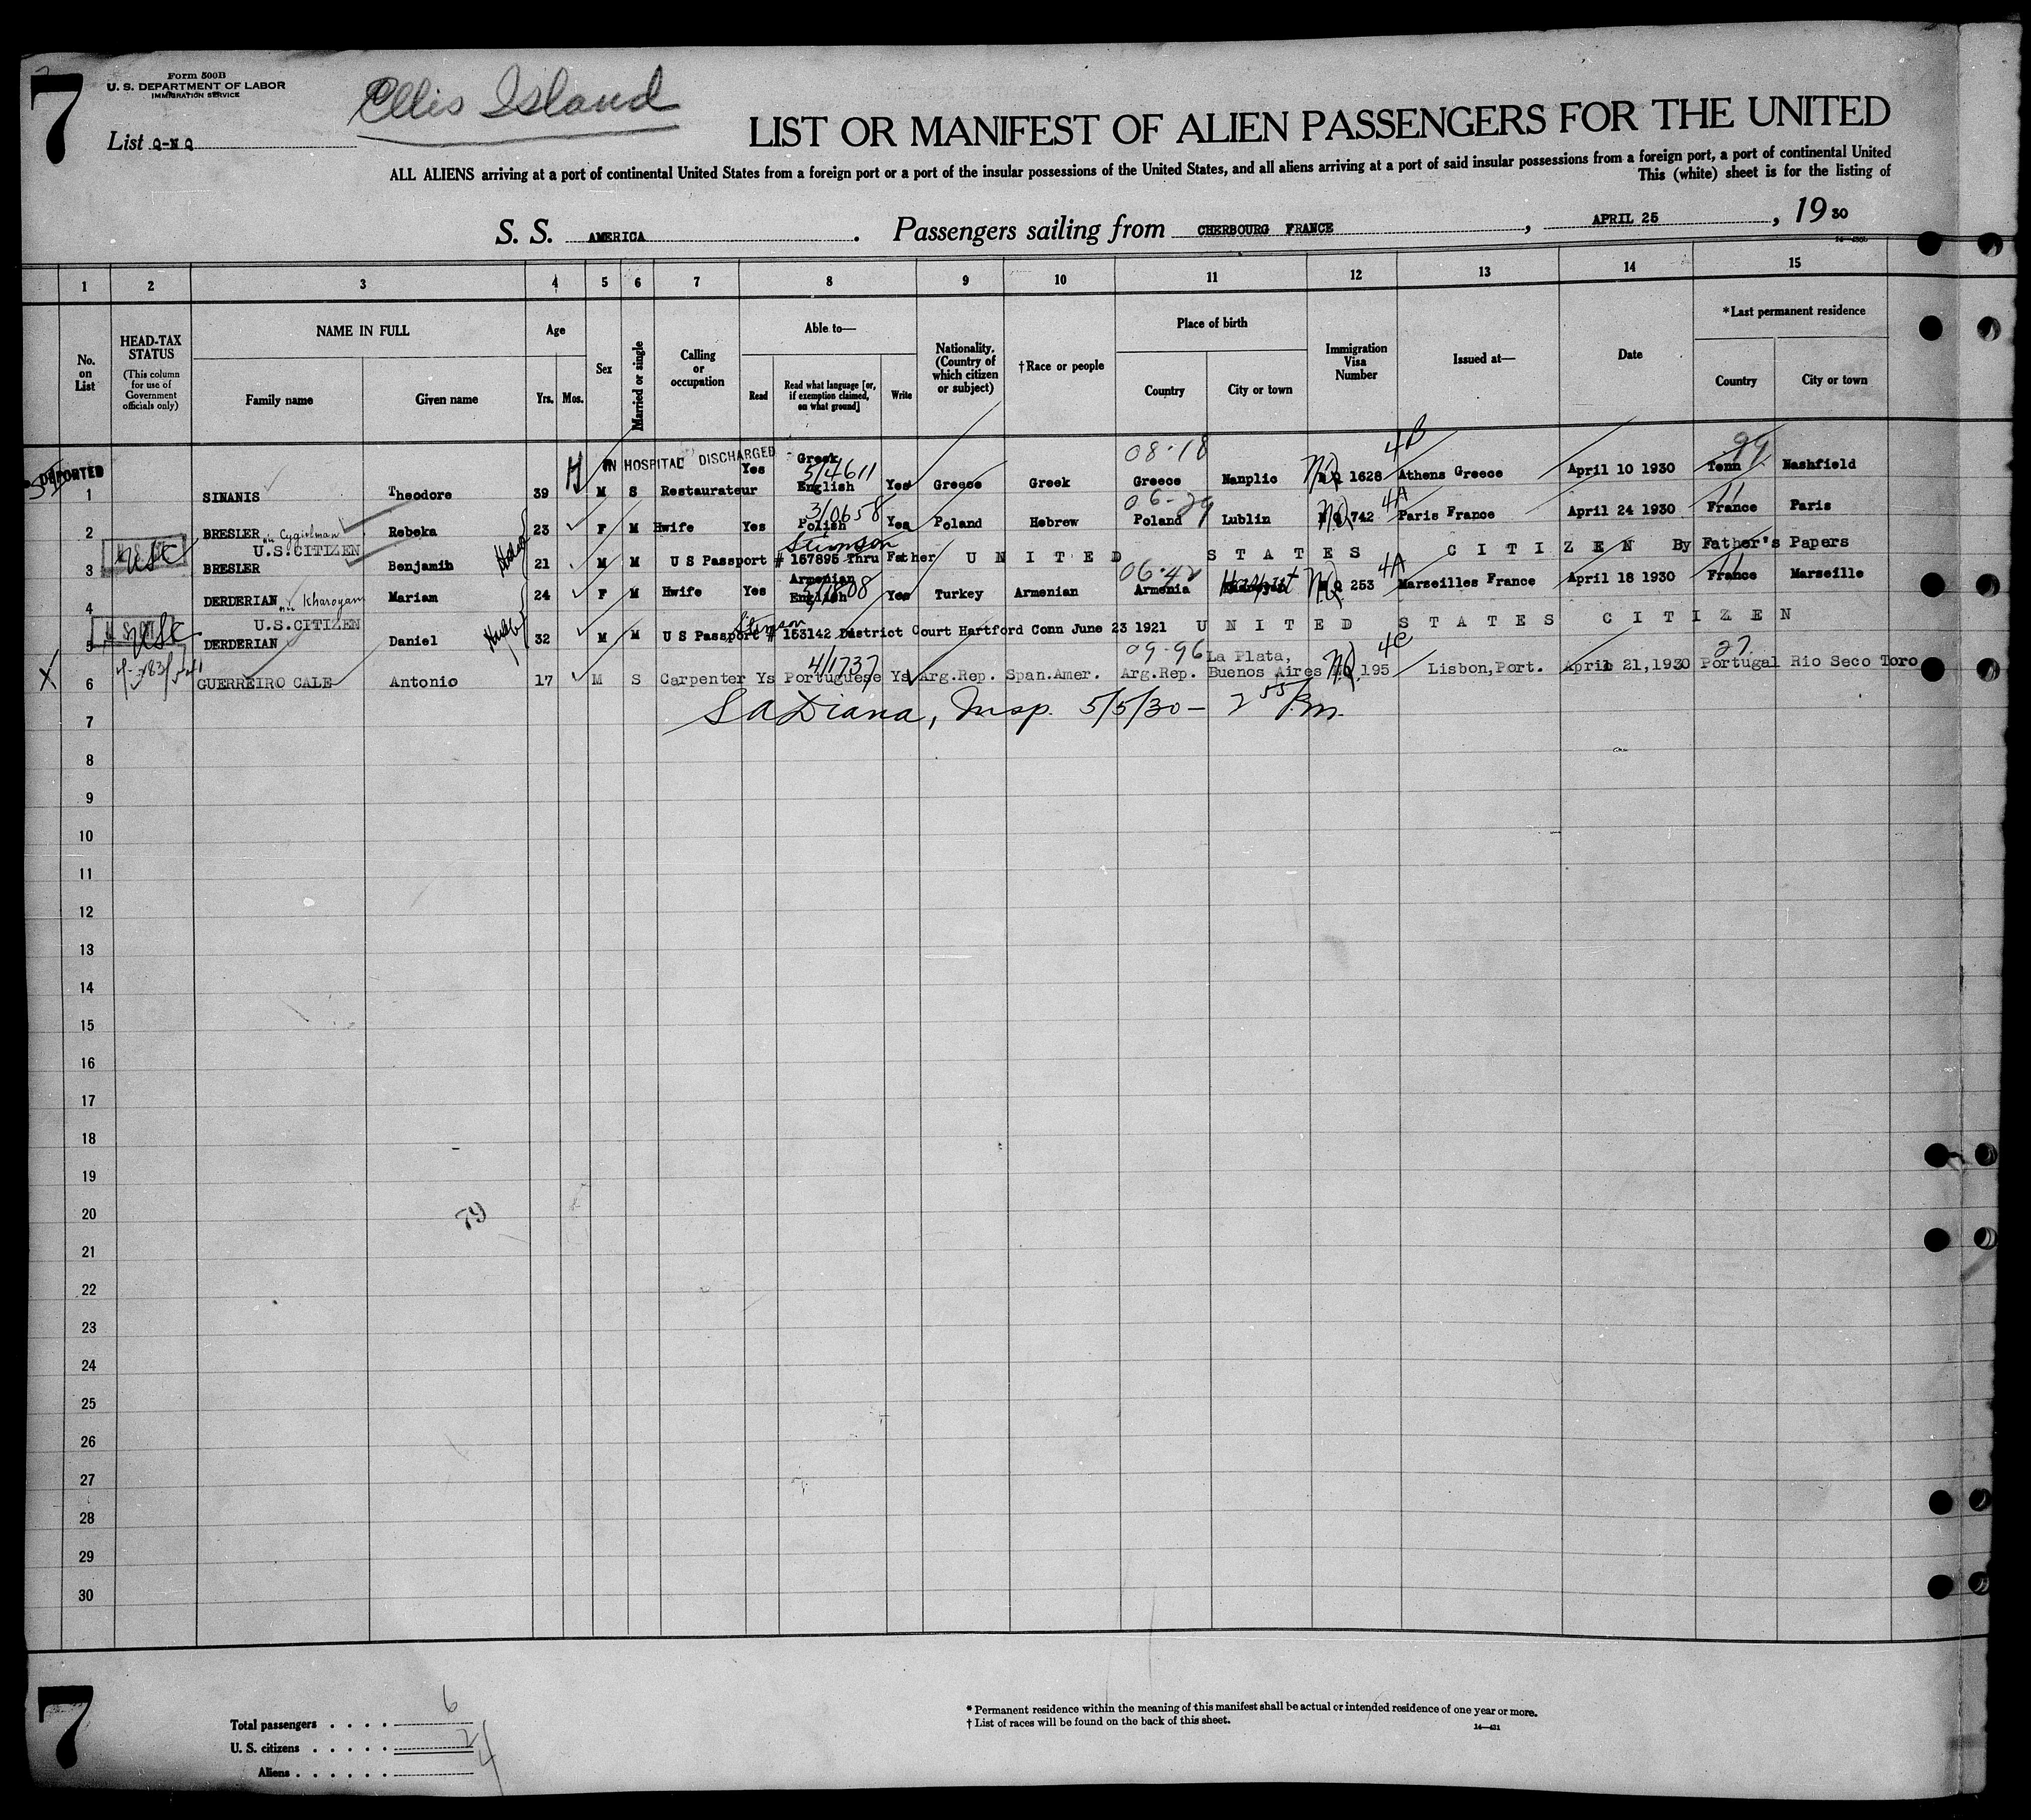 7
Form 500B
U. S. DEPARTMENT OF LABOR
IMMIGRATION SERVICE
Ellis Island
List Q-N Q
LIST OR MANIFEST OF ALIEN PASSENGERS FOR THE UNITED
ALL ALIENS arriving at a port of continental United States from a foreign port or a port of the insular possessions of the United States, and all aliens arriving at a port of said insular possessions from a foreign port, a port of continental United
This (white) sheet is for the listing of
S. S. AMERICA. Passengers sailing from CHERBOURG FRANCE, APRIL 25, 1930
1 2 3 4 5 6 7 8 9 10 11 12 13 14 15
No. on List
HEAD-TAX STATUS
(This column for use of Government officials only)
NAME IN FULL
Family name Given name
Age
Yrs. Mos.
Sex
Married or single
Calling or occupation
Able to—
Read
Read what language [or, if exemption claimed, on what ground]
Write
Nationality. (Country of which citizen or subject)
†Race or people
Place of birth
Country City or town
Immigration Visa Number
Issued at—
Date
*Last permanent residence
Country City or town
DEPORTED
IN HOSPITAL DISCHARGED
08-18 4B 99
1 SINANIS Theodore 39 M S Restaurateur Yes Greek English 5/4611 Yes Greece Greek Greece Nanplio NQ 1628 Athens Greece April 10 1930 Tenn Nashfield
3/0658 06-29 4A
2 BRESLER Rebeka 23 F M Hwife Yes Polish Yes Poland Hebrew Poland Lublin NQ 742 Paris France April 24 1930 France Paris
U.S.CITIZEN
Stimson
3 USC BRESLER Benjamin 21 M M U S Passport # 167895 Thru Father UNITED STATES CITIZEN By Father's Papers
06-42 4A
4 DERDERIAN Kharoyan Mariam 24 F M Hwife Yes Armenian English Yes Turkey Armenian Armenia Harput NQ 253 Marseilles France April 18 1930 France Marseille
U.S.CITIZEN
Stimson
5 USC DERDERIAN Daniel 32 M M U S Passport # 153142 District Court Hartford Conn June 23 1921 UNITED STATES CITIZEN
4/1737 09-96 4C 27
6 X GUERREIRO CALE Antonio 17 M S Carpenter Ys Portuguese Ys Arg.Rep. Span.Amer. Arg.Rep. La Plata, Buenos Aires NQ 195 Lisbon,Port. April 21,1930 Portugal Rio Seco Toro
S A Diana, Insp. 5/5/30 - 2 55 P.m.
7
8
9
10
11
12
13
14
15
16
17
18
19
20
79
21
22
23
24
25
26
27
28
29
30
7
Total passengers . . . . 6
U. S. citizens . . . . . 2
Aliens . . . . . . 4
* Permanent residence within the meaning of this manifest shall be actual or intended residence of one year or more.
† List of races will be found on the back of this sheet.
14—431